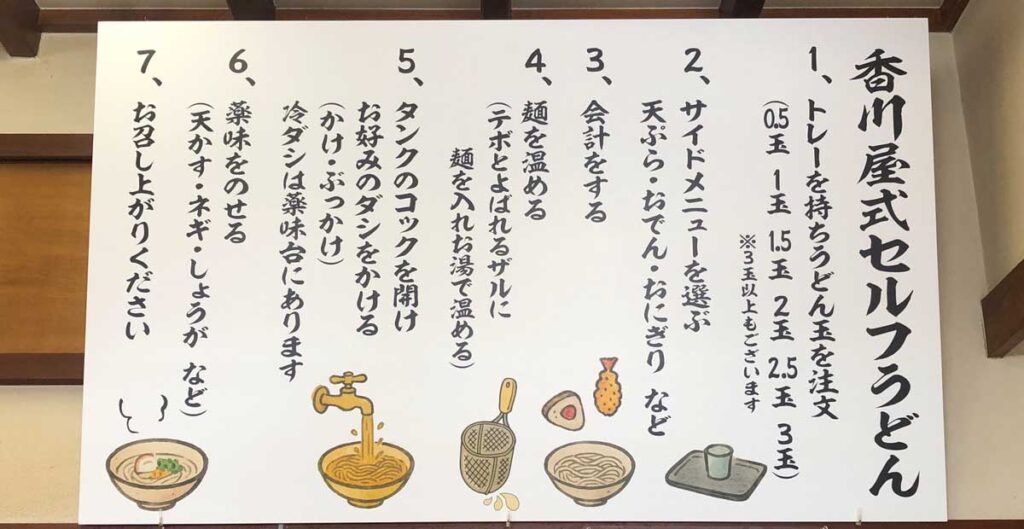 香川屋式セルフうどん
1、トレーを持ちうどん玉を注文
(0.5玉 1玉 1.5玉 2玉 2.5玉 3玉)
※3玉以上もございます
2、サイドメニューを選ぶ
天ぷら・おでん・おにぎり など
3、会計をする
4、麺を温める
(テボとよばれるザルに
麺を入れお湯で温める)
5、タンクのコックを開け
お好みのダシをかける
(かけ・ぶっかけ)
冷ダシは薬味台にあります
6、薬味をのせる
(天かす・ネギ・しょうが など)
7、お召し上がりください